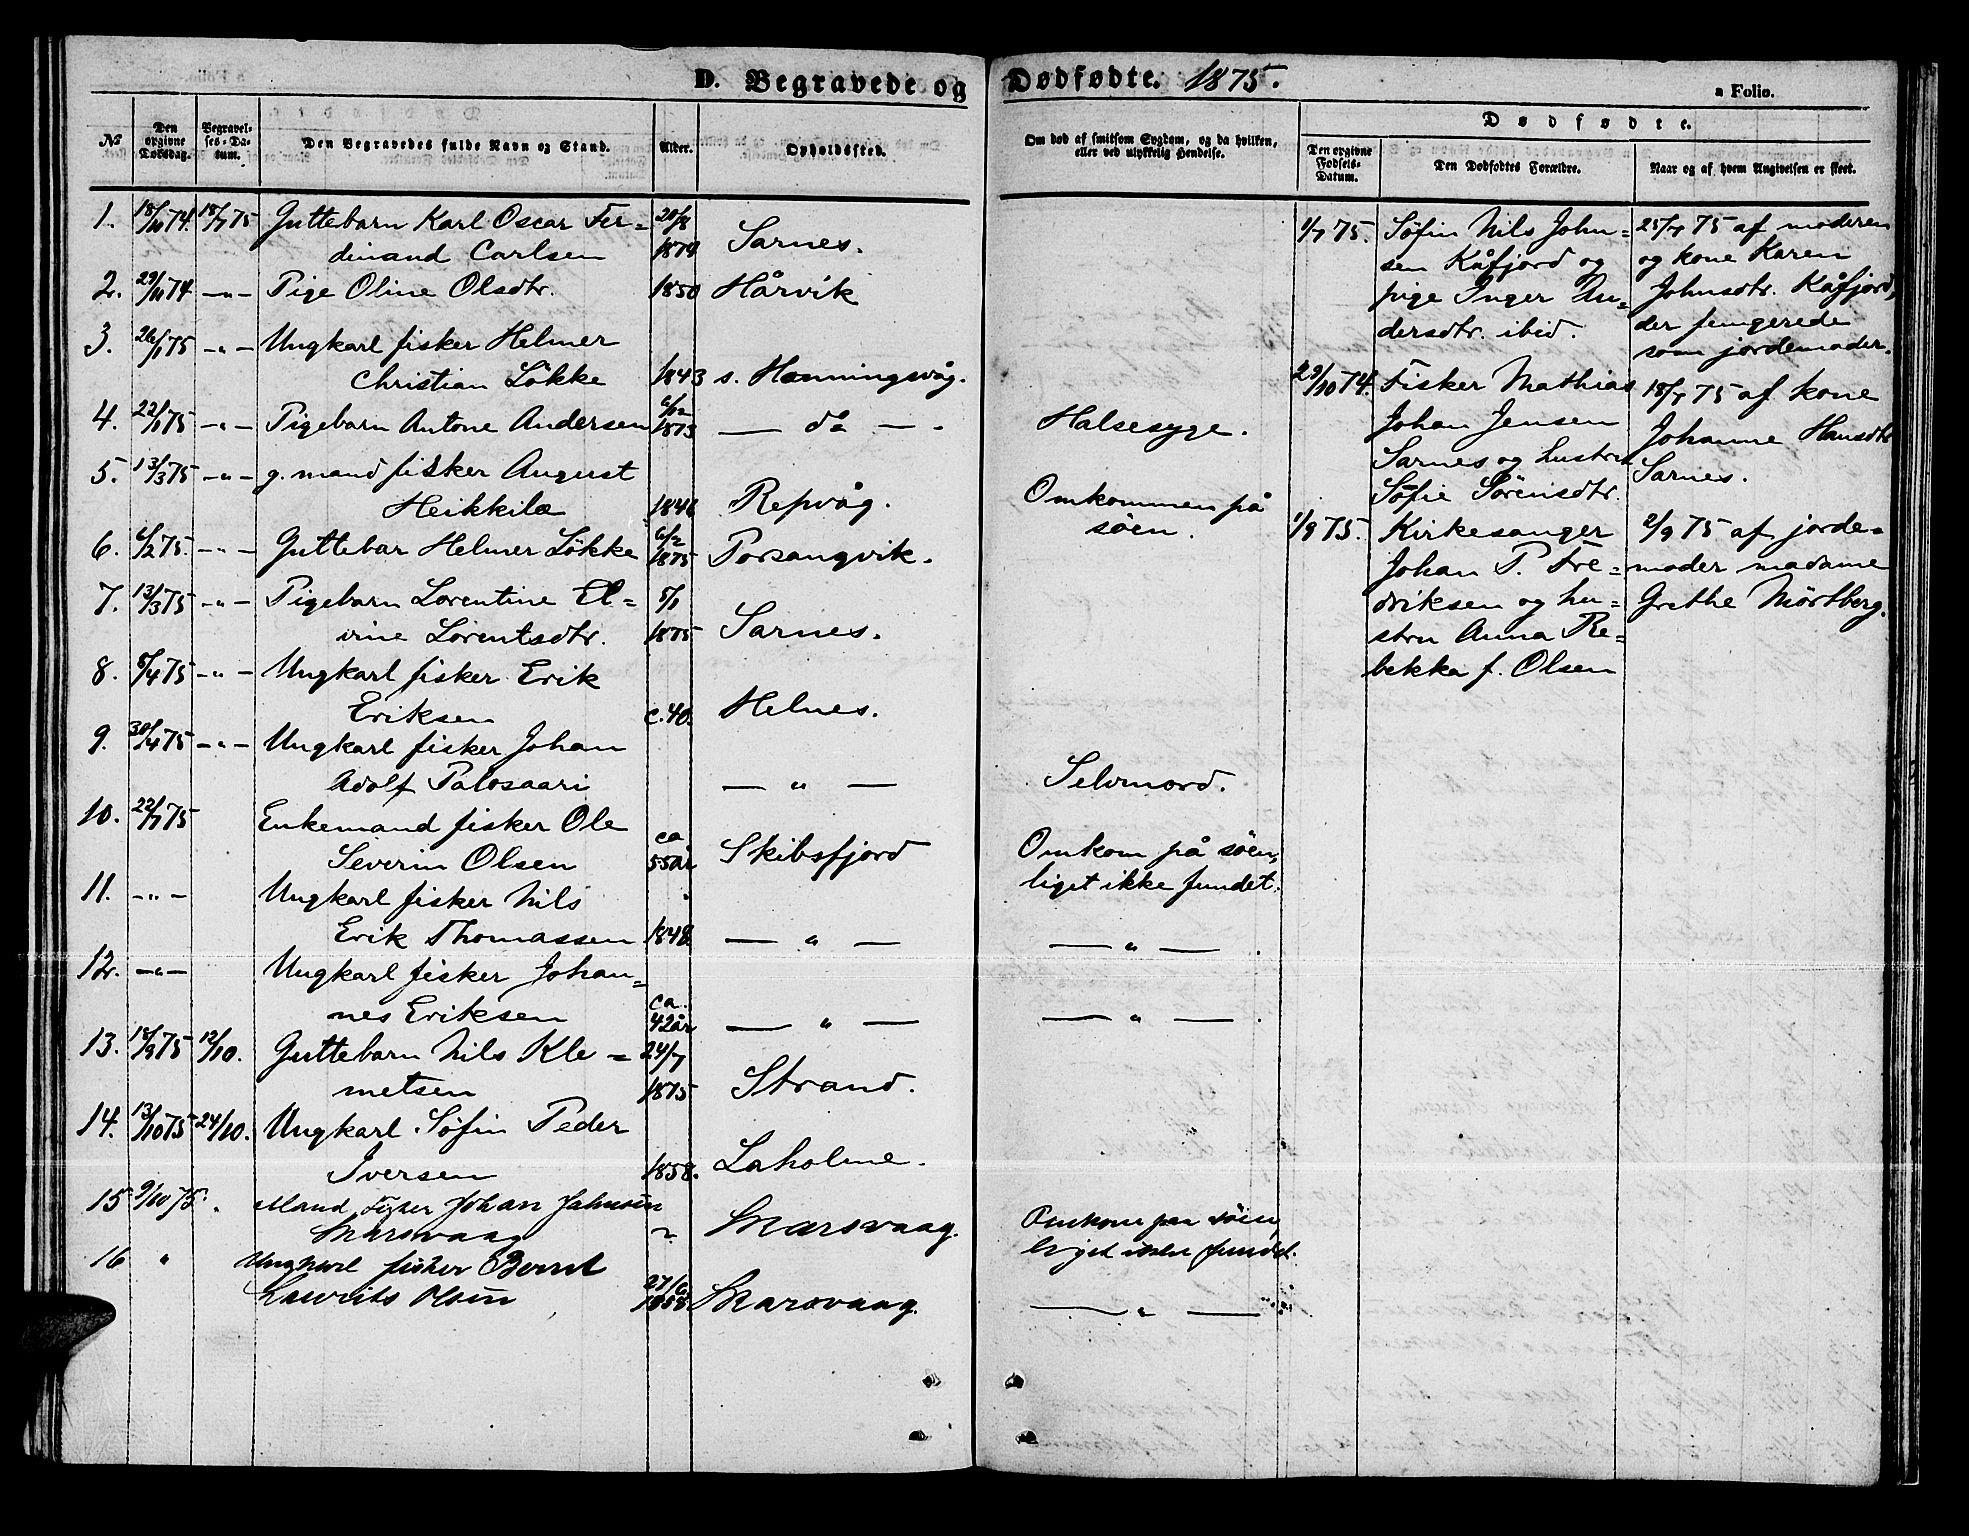 D. Begravede og Dødfødte. 1875.
a Folio.
№
Den opgivne Dødsdag.
Begravelses-Datum.
Den Begravedes fulde Navn og Stand.
Alder.
Opholdssted.
Om død af smitsom Sygdom, og da hvilken, eller ved ulykkelig Hendelse.
Dødfødte.
Den opgivne Fødsels-Datum.
Den Dødfødtes Forældre.
Naar og af hvem Angivelsen er skeet.
1. 18/10 74. 18/7 75 Guttebarn Karl Oscar Fer=
dinand Carlsen 1874 Sarnes.
2. 29/10 74 -"- Pige Oline Olsdtr. 1850 Hårvik
3. 26/1 75 -"- Ungkarl fisker Helmer
Christian Lökke 1843 s. Honningsvåg.
4. 22/1 75 -"- Pigebarn Antone Andersen 6/12 1873 — do — Halsesyge.
5. 13/3 75 -"- g. mand fisker August
Heikkilæ 1846 Repvåg. Omkommen på
søen.
6. 6/2 75. -"- Guttebar Helmer Lökke 6/2 1875 Porsangvik.
7. 13/3 75 -"- Pigebarn Lorentine El=
vine Lorentsdtr. 5/1 1875 Sarnes.
8. 5/4 75 -"- Ungkarl fisker Erik
Eriksen c. 40. Helnes.
9. 30/4 75 -"- Ungkarl fisker Johan
Adolf Palosaari — " — Selvmord.
10. 22/7 75 Enkemand fisker Ole
Severin Olsen ca 55 år Skibsfjord Omkom på søen,
liget ikke fundet.
11. -"- Ungkarl fisker Nils
Erik Thomassen 1848. — " — — " — .
12. -"- Ungkarl fisker Johan=
nes Eriksen ca. 42 år — " — — " — .
13. 18/9 75 12/10. Guttebarn Nils Kle=
metsen 24/7 1875 Strand.
14. 13/10 75 24/10. Ungkarl Søfin Peder
Iversen 1858. Laholme.
15 9/10 75. Mand Fisker Johan Jahnsen
Skarsvaag Skarsvaag. Omkom paa Søen,
liget ikke fundet.
16 " Ungkarl fisker Bernt
Lauritz Olsen 27/6 1858. Skarsvaag. — " —
1/7 75. Søfin Nils John=
sen Kåfjord og
pige Inger An=
dersdtr. ibid.
25/7 75 af moderen
og kone Karen
Johnsdtr. Kåfjord,
der fungerede
som jordemoder.
29/10 74. Fisker Mathias
Johan Jensen
Sarnes og hustru
Sofie Sörensdtr.
18/7 75 af kone
Johanne Hansdtr
Sarnes.
1/9 75. Kirkesanger
Johan P. Fre=
driksen og hu=
stru Anna Re=
bekka f. Olsen
2/9 75 af jorde=
moder madame
Grethe Mörtberg.